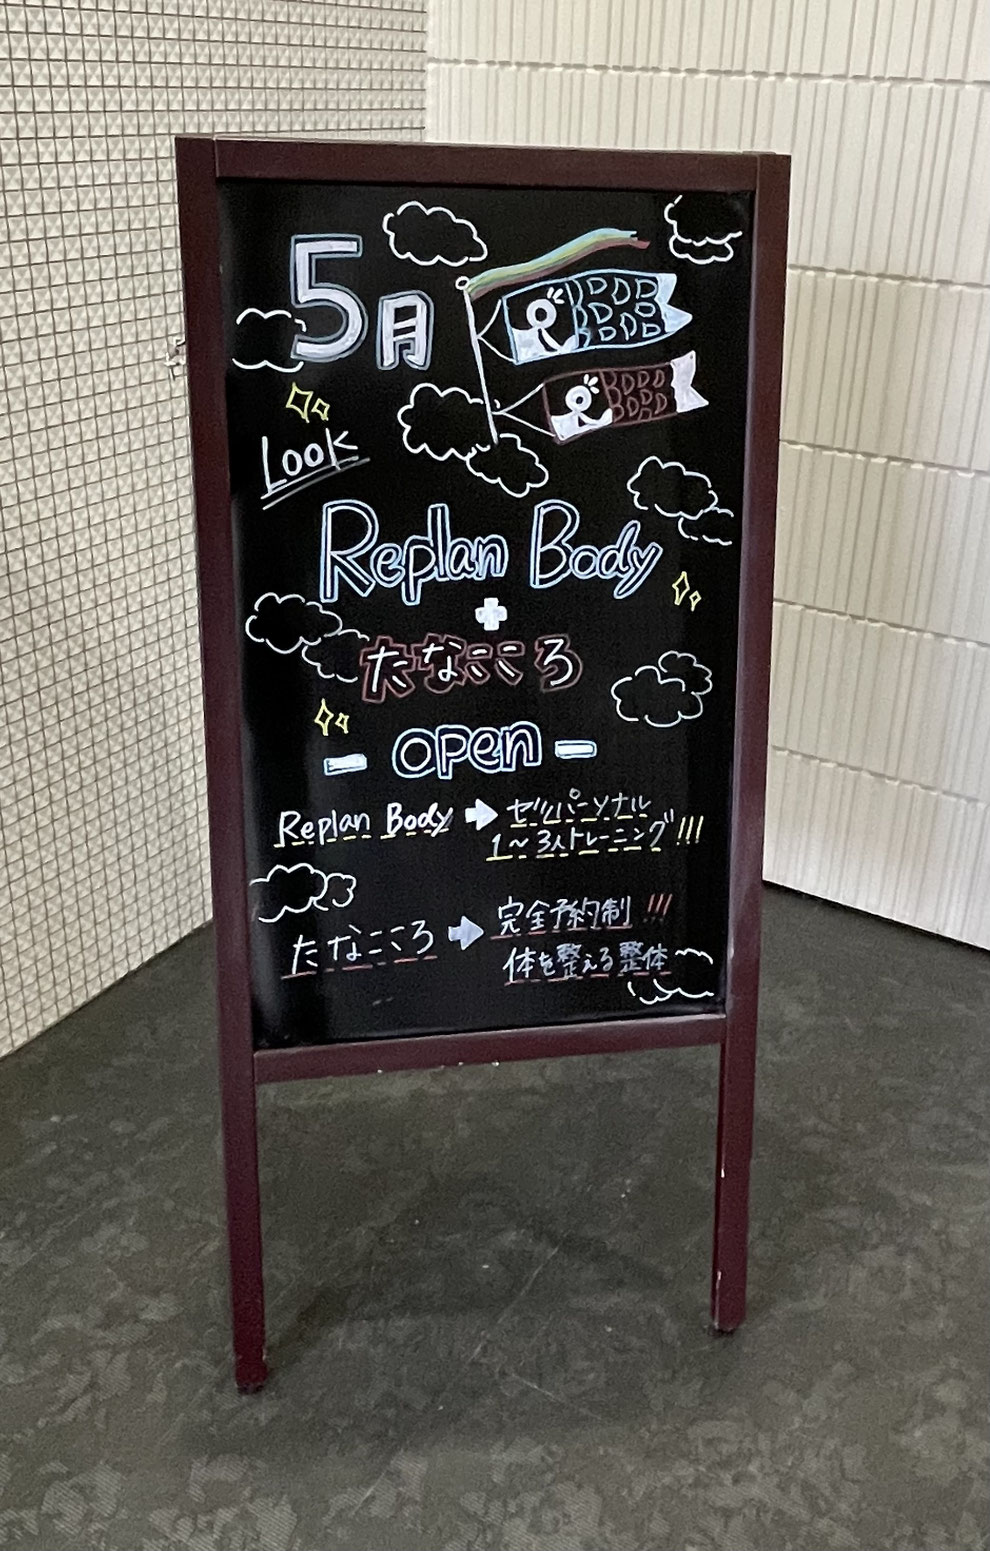 5月
Look
Replan Body
+
たなこころ
- open -
Replan Body ➡ セミパーソナル
1〜3人トレーニング!!!
たなこころ ➡ 完全予約制!!!
体を整える整体